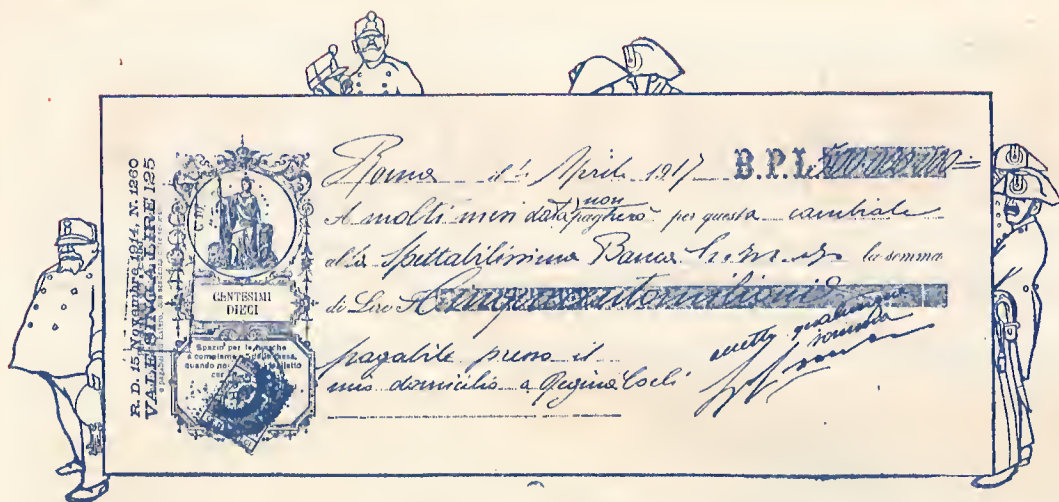 R. D. 15 Novembre 1914, N. 1260
VALE SINO A LIRE 125
CENTESIMI
DIECI
Spazio per le marche
a complemento della tassa,
quando non
Roma il 1 Aprile 1917 B.P.L. 500.000.000=
A molti mesi data non pagherò per questa cambiale
alla Spettabilissima Banca la somma
di Lire Cinquecentomilioni
pagabile presso il
mio domicilio a Regina Coeli
accetto qualunque
somma